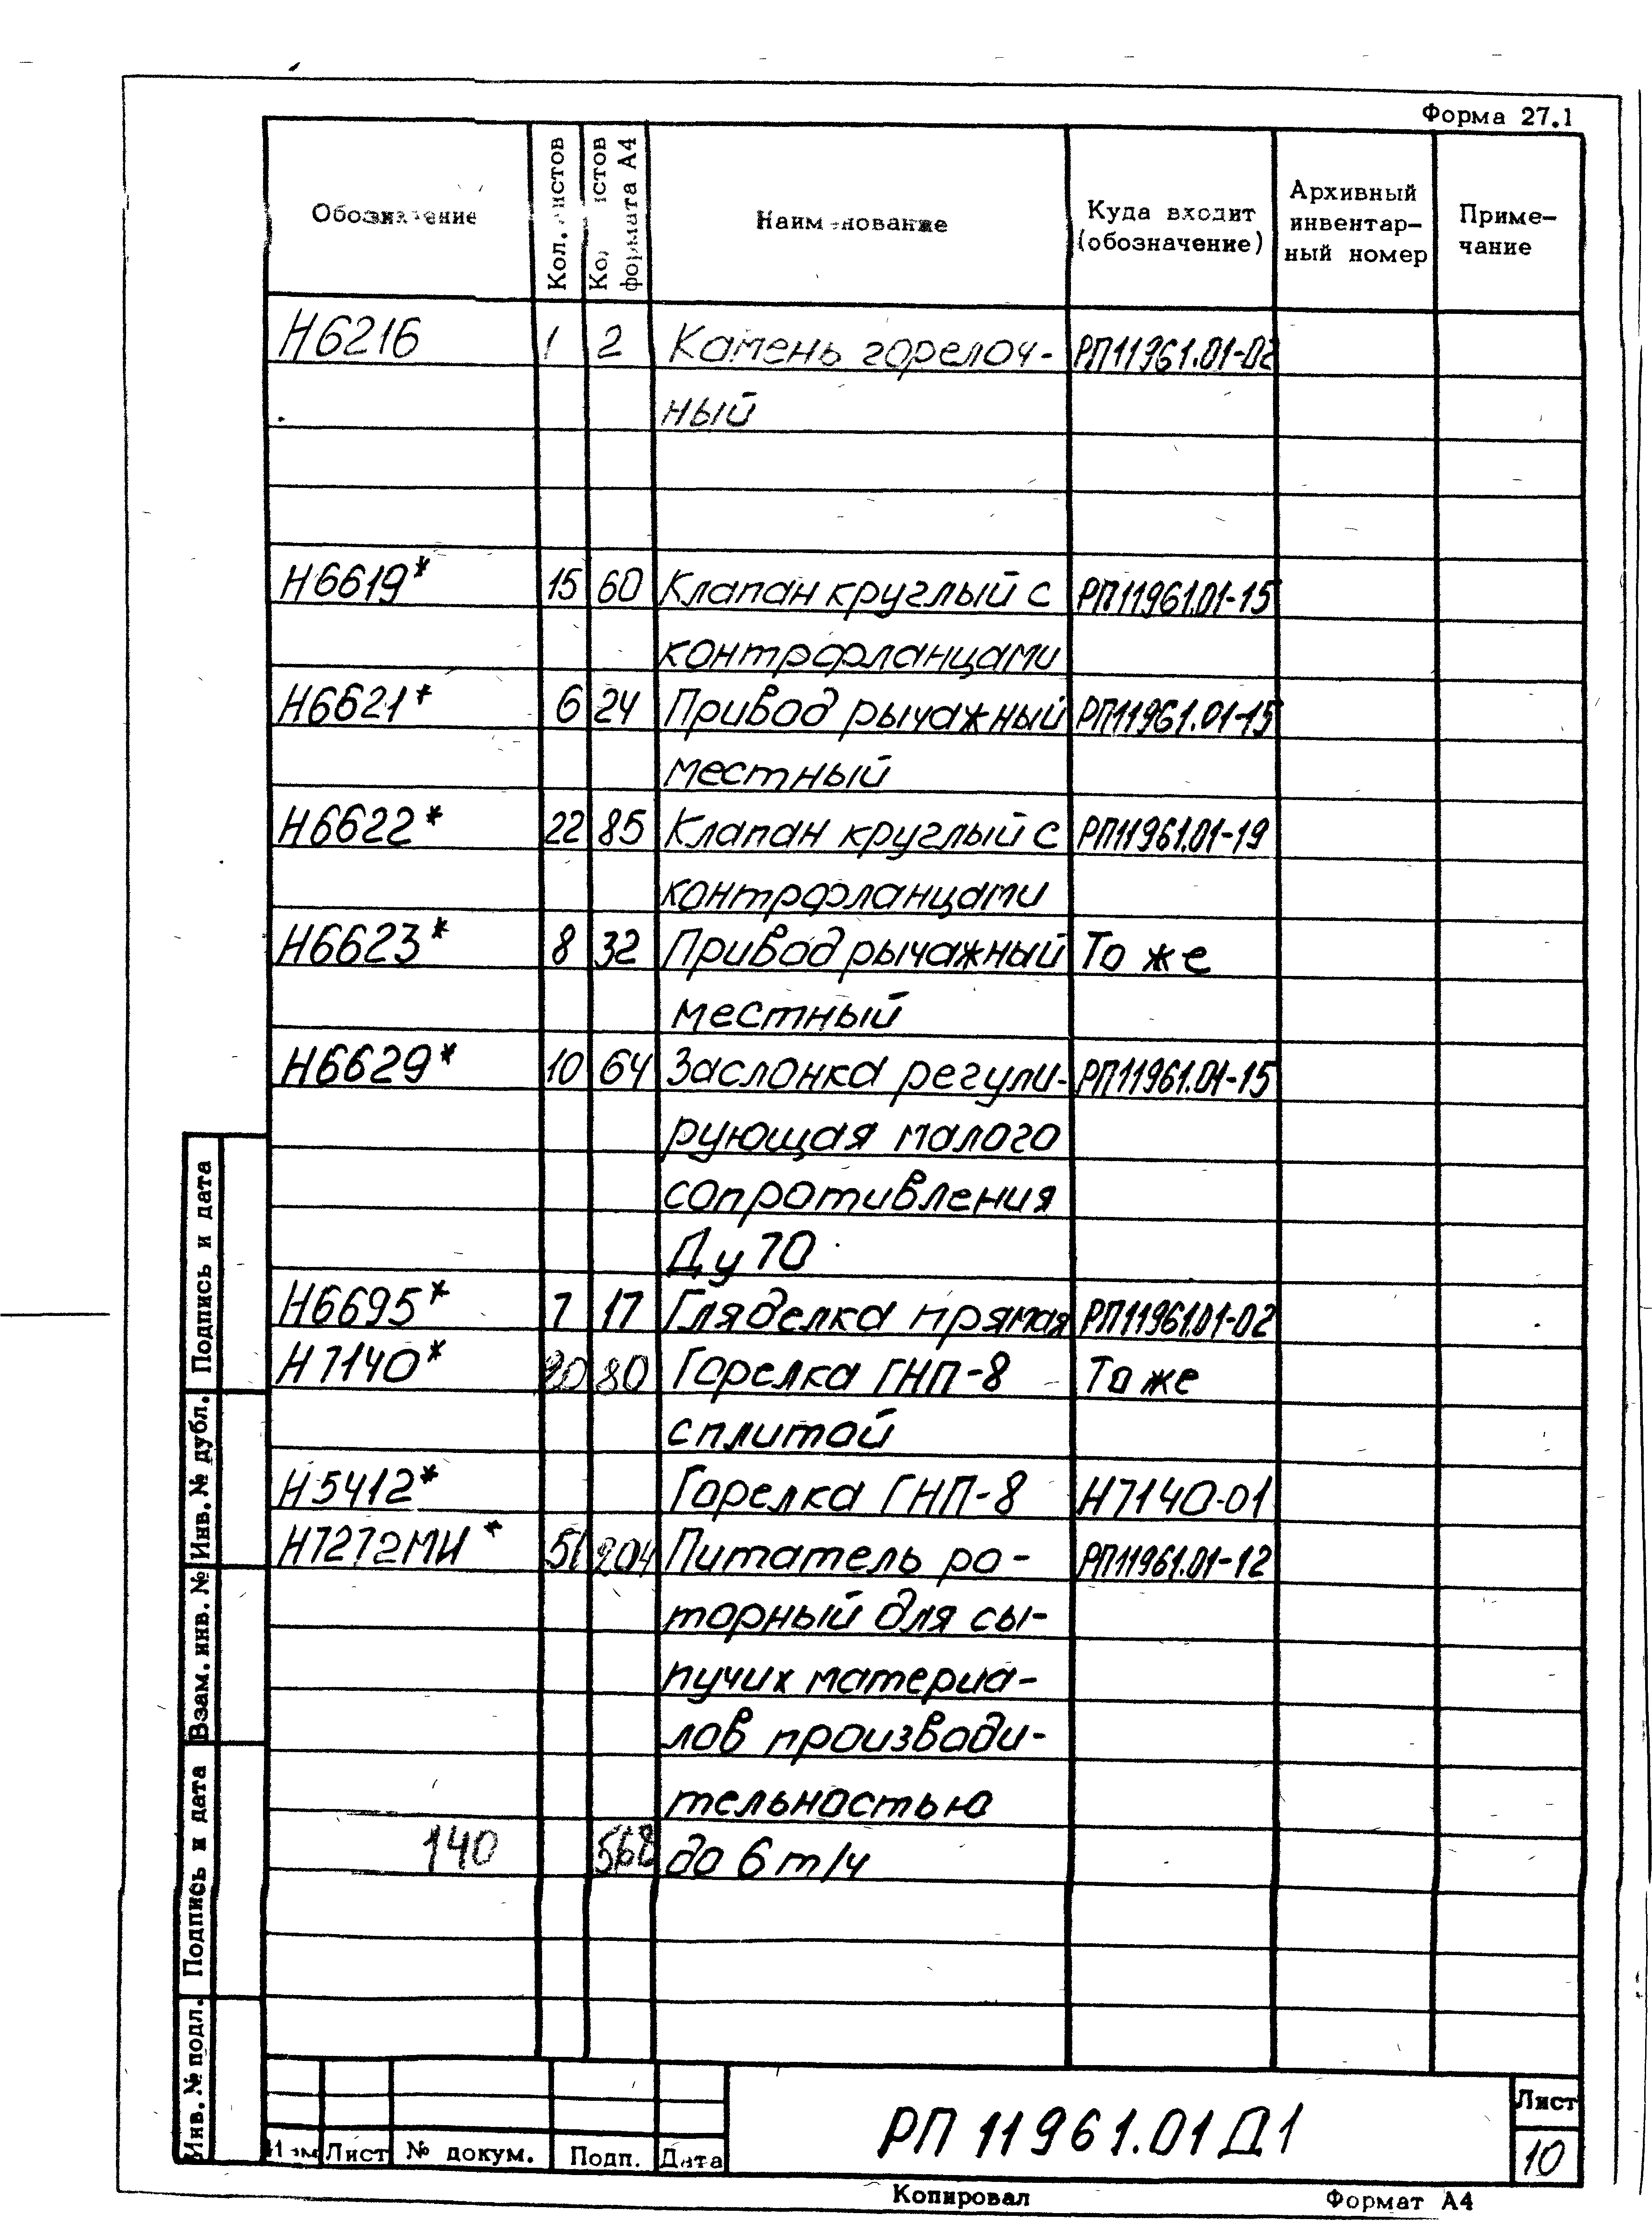 Форма 27.1
Обозначение
Кол. листов
Кол. листов
формата А4
Наименование
Куда входит
(обозначение)
Архивный
инвентар-
ный номер
Приме-
чание
Н6216 1 2 Камень горелоч- РП11961.01-02
ный
Н6619* 15 60 Клапан круглый с РП11961.01-15
контрфланцами
Н6621* 6 24 Привод рычажный РП11961.01-15
местный
Н6622* 22 85 Клапан круглый с РП11961.01-19
контрфланцами
Н6623* 8 32 Привод рычажный То же
местный
Н6629* 10 64 Заслонка регули- РП11961.01-15
рующая малого
сопротивления
Ду 70
Н6695* 7 17 Гляделка прямая РП11961.01-02
Н7140* 20 80 Горелка ГНП-8 То же
с плитой
Н5412* Горелка ГНП-8 Н7140-01
Н7272МИ* 51 204 Питатель ро- РП11961.01-12
торный для сы-
пучих материа-
лов производи-
тельностью
140 568 до 6 т/ч
Подпись и дата
Инв. № дубл.
Взам. инв. №
Подпись и дата
Инв. № подл.
Изм Лист № докум. Подп. Дата
РП 11961.01 Д1
Лист
10
Копировал Формат А4